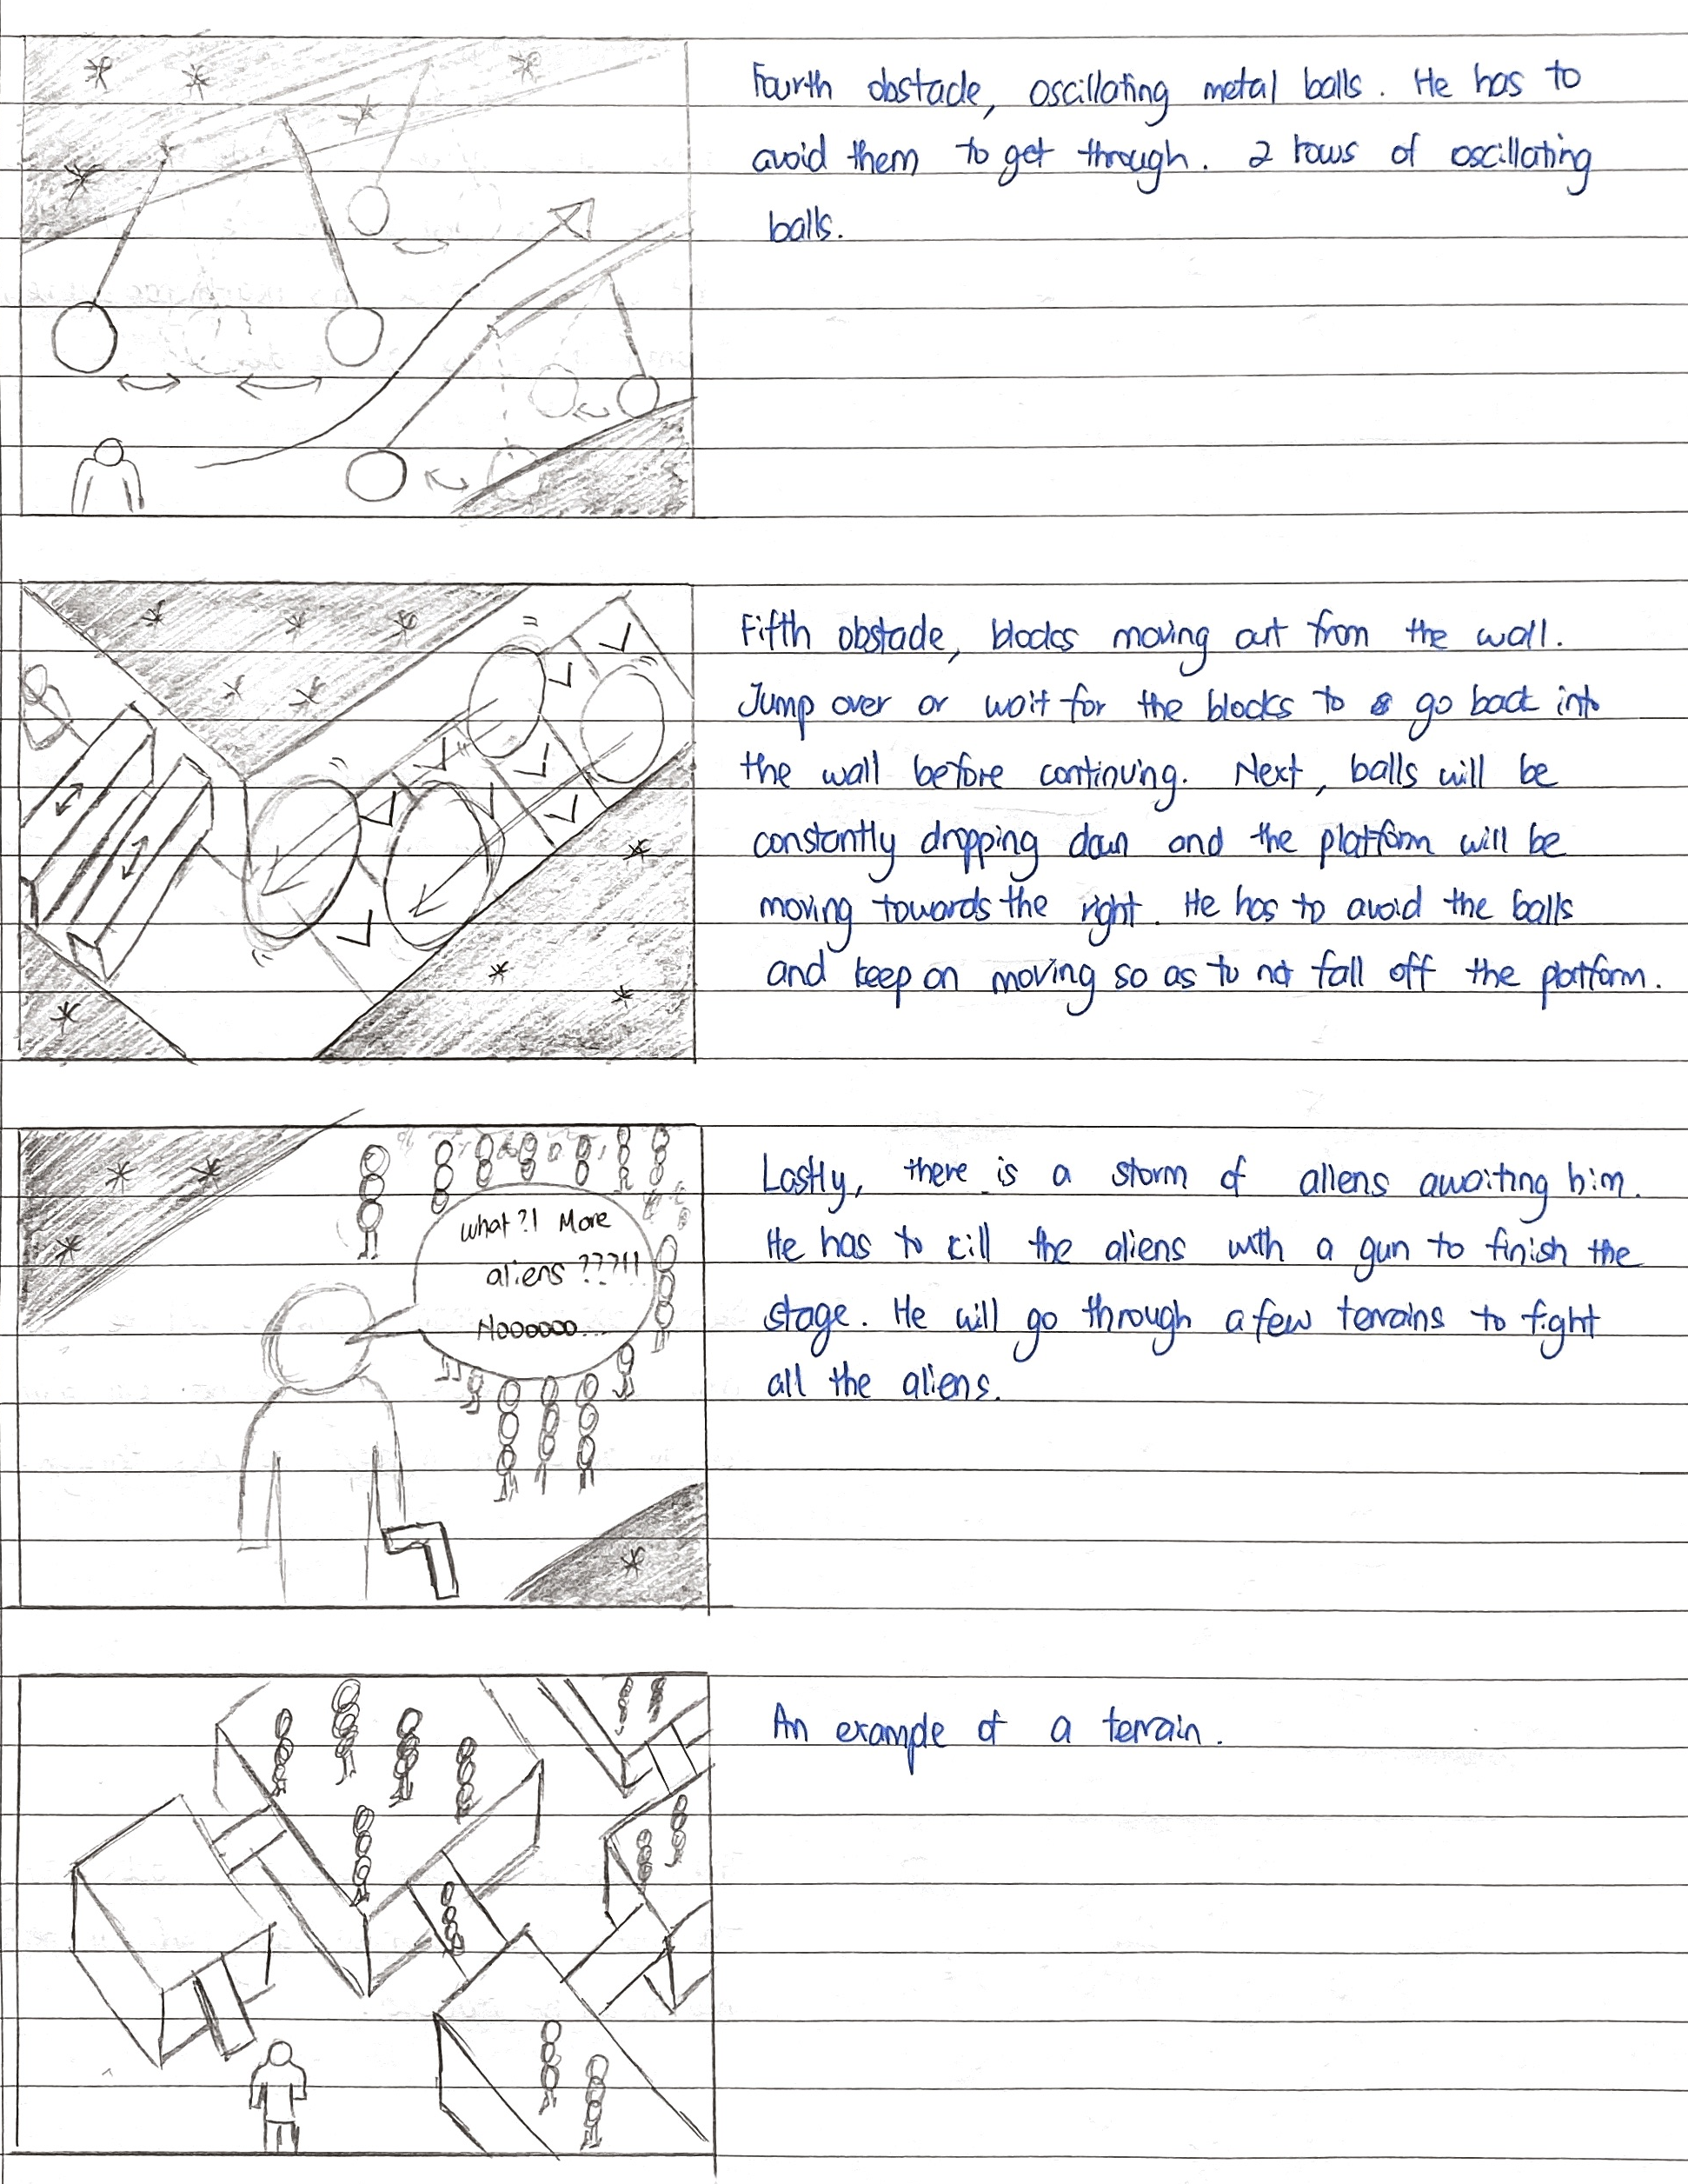 Fourth obstacle, oscillating metal balls. He has to
avoid them to get through. 2 rows of oscillating
balls.
Fifth obstacle, blocks moving out from the wall.
Jump over or wait for the blocks to go back into
the wall before continuing. Next, balls will be
constantly dropping down and the platform will be
moving towards the right. He has to avoid the balls
and keep on moving so as to not fall off the platform.
what?! More
aliens ???!!
Noooooo...
Lastly, there is a storm of aliens awaiting him.
He has to kill the aliens with a gun to finish the
stage. He will go through a few terrains to fight
all the aliens.
An example of a terrain.